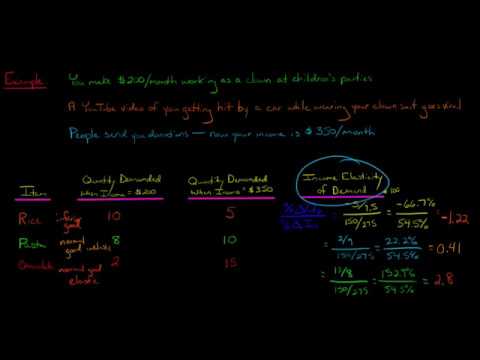 Example: You make $200/month working as a clown at children's parties
A YouTube video of you getting hit by a car while wearing your clown suit goes viral
People send you donations — now your income is $350/month
Item
Quantity Demanded When Income = $200
Quantity Demanded When Income = $350
Income Elasticity of Demand
Rice inferior good 10 5 = -5/7.5 / 150/275 = -66.7% / 54.5% = -1.22
Pasta normal good 8 10 = 2/9 / 150/275 = 22.2% / 54.5% = 0.41
normal good elastic 2 15 = 13/8 / 150/275 = 54.5% = 2.8